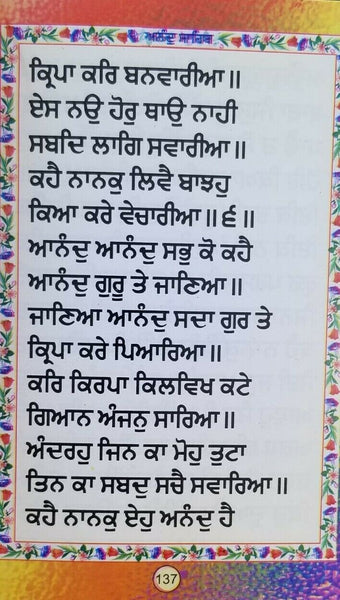 ਆਨੰਦੁ ਸਾਹਿਬ
ਕ੍ਰਿਪਾ ਕਰਿ ਬਨਵਾਰੀਆ॥
ਏਸ ਨਉ ਹੋਰੁ ਥਾਉ ਨਾਹੀ
ਸਬਦਿ ਲਾਗਿ ਸਵਾਰੀਆ॥
ਕਹੈ ਨਾਨਕੁ ਲਿਵੈ ਬਾਝਹੁ
ਕਿਆ ਕਰੇ ਵੇਚਾਰੀਆ॥੬॥
ਆਨੰਦੁ ਆਨੰਦੁ ਸਭੁ ਕੋ ਕਹੈ
ਆਨੰਦੁ ਗੁਰੂ ਤੇ ਜਾਣਿਆ॥
ਜਾਣਿਆ ਆਨੰਦੁ ਸਦਾ ਗੁਰ ਤੇ
ਕ੍ਰਿਪਾ ਕਰੇ ਪਿਆਰਿਆ॥
ਕਰਿ ਕਿਰਪਾ ਕਿਲਵਿਖ ਕਟੇ
ਗਿਆਨ ਅੰਜਨੁ ਸਾਰਿਆ॥
ਅੰਦਰਹੁ ਜਿਨ ਕਾ ਮੋਹੁ ਤੁਟਾ
ਤਿਨ ਕਾ ਸਬਦੁ ਸਚੈ ਸਵਾਰਿਆ॥
ਕਹੈ ਨਾਨਕੁ ਏਹੁ ਅਨੰਦੁ ਹੈ
137